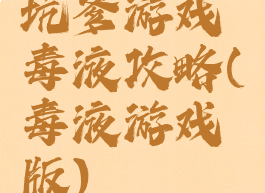 坑爹游戏
毒液攻略(
毒液游戏
版)